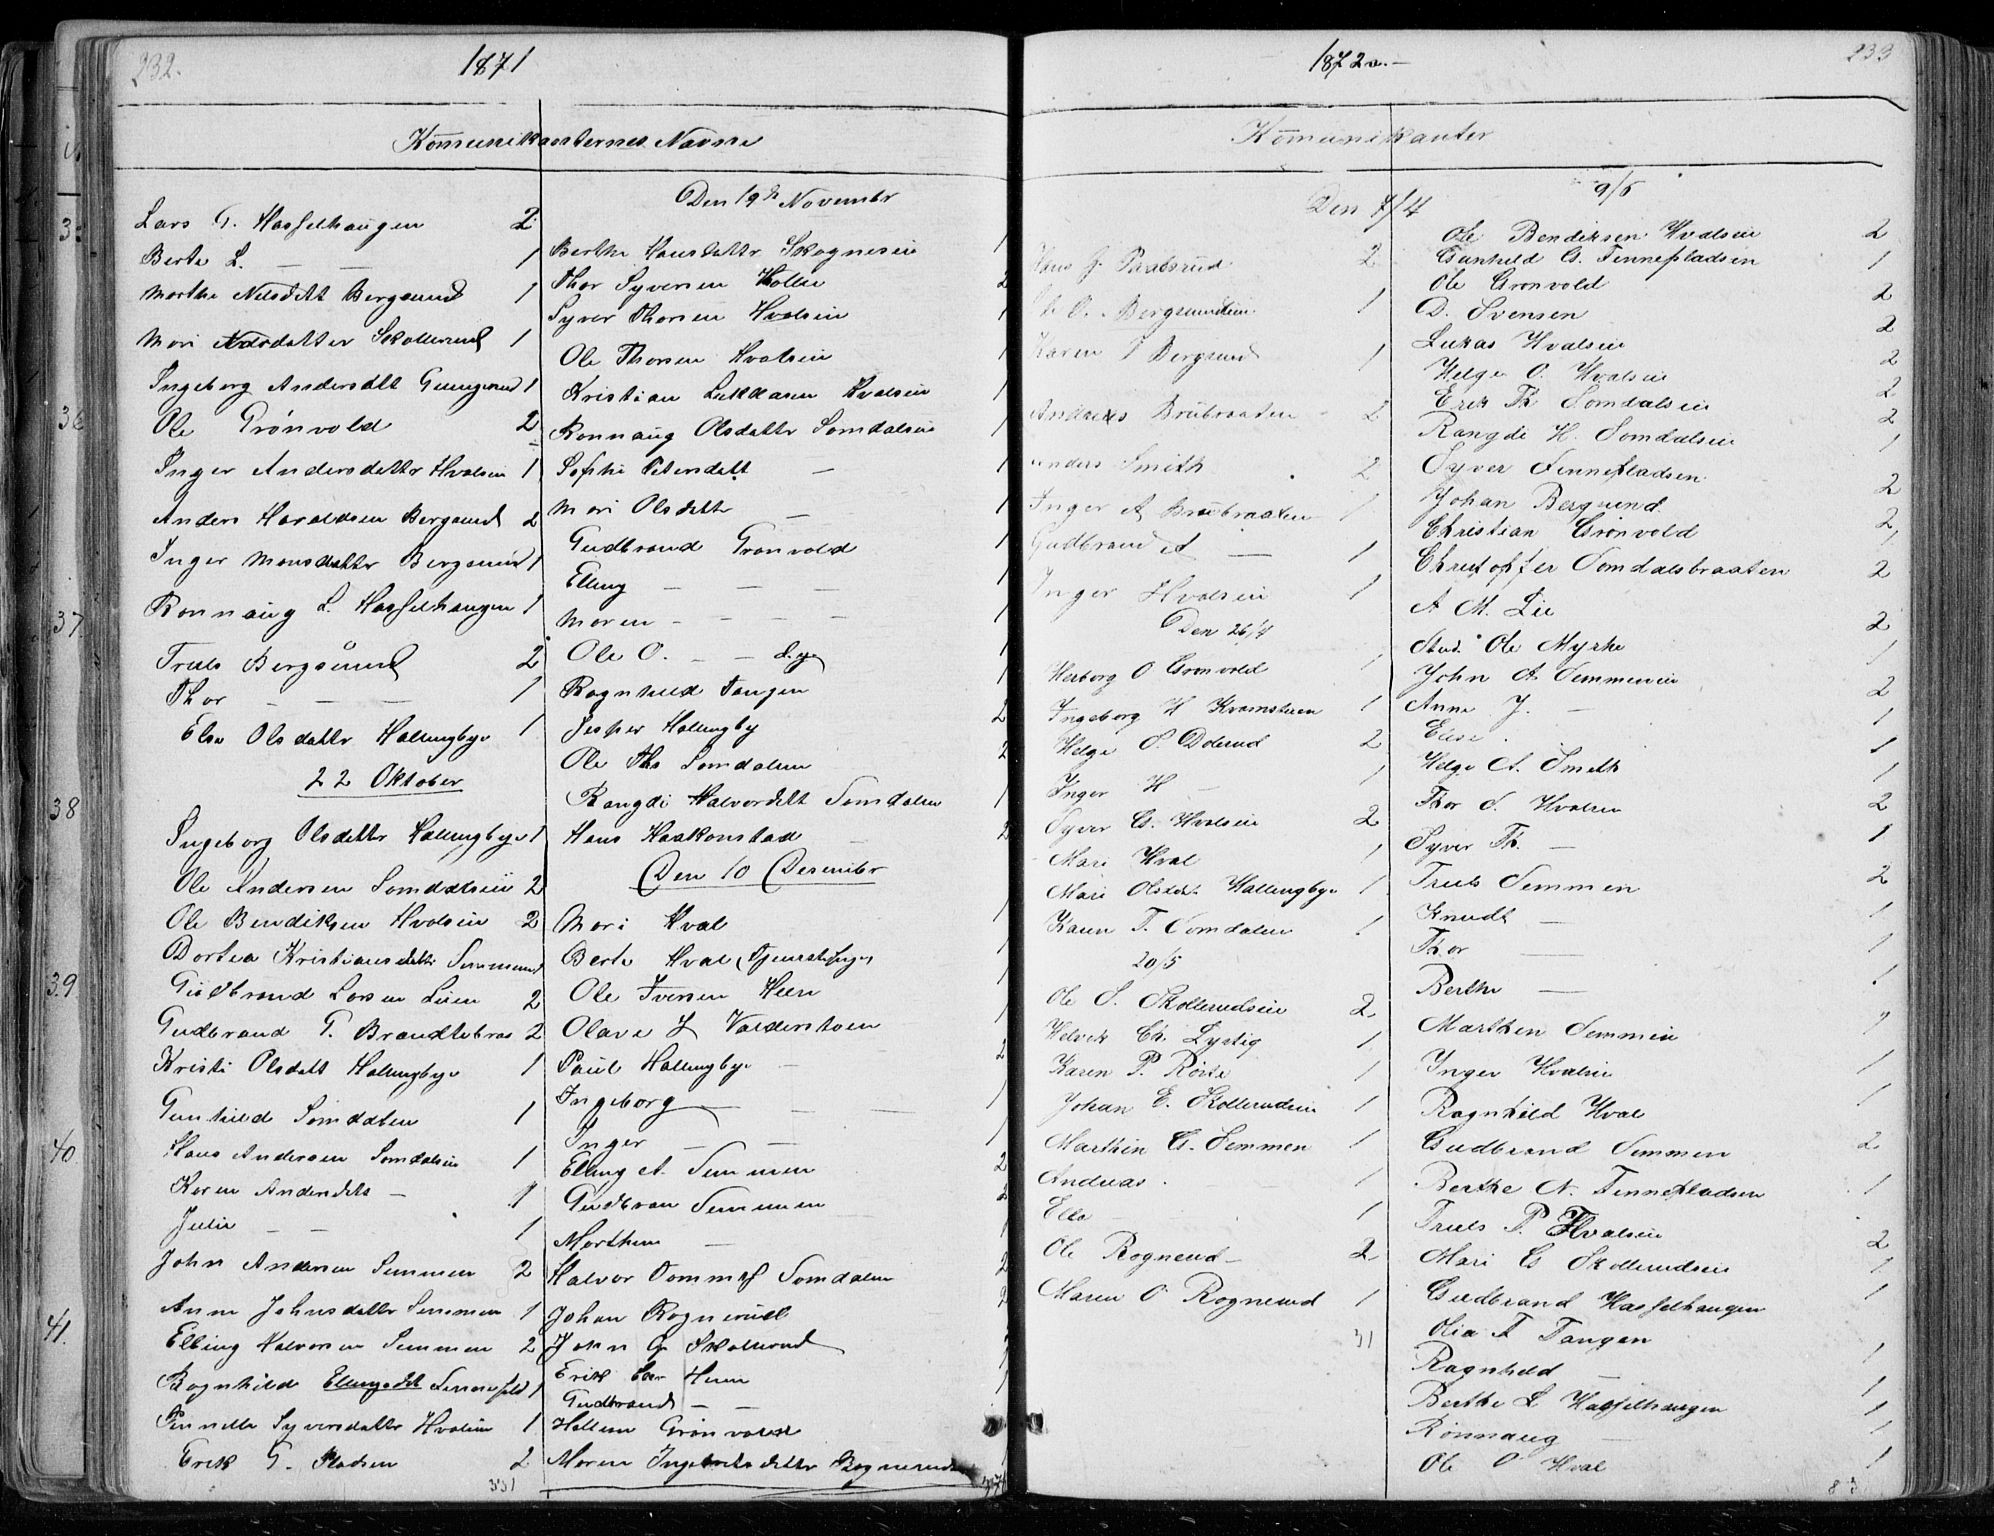 232.
1871
Komunikanternes Navne
Lars G. Hasselhaugen 2
Berte L. — — 1
Marthe Nilsdatt Bergsund 1
Mari datter Skollerud 1
Ingeborg Andersdtt 1
Ole Grönvold 2
Inger Andersdattr Hvalsein 1
Anders Haraldsen Bergsund 2
Inger Monsdatter Bergsund 1
Ronnaug L. Hasselhaugen 1
Truls Bergsund 2
Thor — — — 1
Else Olsdattr Hallingbye 1
22 Oktober
Ingeborg Olsdattr Hallingbye 1
Ole Andersen Somdalseie 2
Ole Bendiksen Hvalseie 2
Dortea Kristiansdattr
Gudbrand Larsen 2
Gudbrand G. 2
Kristi Olsdatt Hallingbye 1
Gunhild Somdalen 1
Hans Andersen Somdalseie 1
Karen Andersdatt — 1
Julie — — 1
John Andersen Semmen 2
Anne Johnsdattr Semmen 1
Elling Halvorsen Semmen 2
Ragnhild Ellingsdtt 1
Pernelle Syversdattr Hvalseie 1
Erik G. Pladsen 2
331
Den 19de Novembr
Berthe Hansdattr Skognseie 1
Thor Syversen 2
Syver Thorsen Hvalseie 1
Ole Thorsen Hvalseie
Kristian Lukkasen Hvalseie 1
Ronnaug Olsdattr Somdalseie 1
Sophie Petersdatt — 1
Mari Olsdattr — 1
Gudbrand Grönvold 1
Elling — — — 1
Maren — — — — 1
Ole O. — — d.y. 1
Ragnhild Tangen 1
Jesper Hallingby 2
Ole Ths Somdalen 2
Rangdi Halvorsdtt Somdalen 1
Hans Haakonstad 2
Den 10 Desembr
Mari Hval 1
Berte Hval 1
Ole Iversen Heen 1
Olave J. 1
Paul Hallingbye — 2
Ingeborg — — — 1
Inger — — 1
Elling A. Semmen 2
Gudbran Semmen 2
Marthen — 1
Halvor Tommess Somdalen 2
Johan Rognerud 2
John G Skollerud
Erik Heen 1
Gudbrand — —
Hallum Grönvold
Maren Ingebretsdattr Rognerud
1872
233
Komunikanter
Den 7/4
Hans G. 2
O. Bergsundeie 1
Karen Bergsund 1
Andreas Brubraaten 2
Anders Smith 2
Inger A Brubraaten 1
Gudbrand A — 1
Inger Hvalseie 1
Den 26/4
Herborg O Grönvold 1
Ingeborg H Kramsteen 1
Helge S. Dderud 2
Inger H — 1
Syver G. Hvalseie 2
Mari Hval 1
Mari Olsdtt Hallingbye 1
Karen T. Somdalen 1
20/5
Ole S. Skollerudseie 2
Helvik Ch. Lystig 1
Karen P. Röste 1
Johan E. Skollerudseie 1
Marthin G. Semmen 1
Andreas — 1
Ella — 1
Ole Rognerud — 2
Maren O Rognerud 1
31
9/6
Ole Bendiksen Hvalseie 2
Gunhild G. Finnepladsen 1
Ole Grönvold 2
D. Svensen 2
Lukas Hvalseie
Helge O. Hvalseie 2
Erik Th Somdalseie 2
Rangdi H. Somdalseie 1
Syver Finnepladsen 2
Johan Bergsund 2
Christian Grönvold 1
Christoffer Somdalsbraaten 2
A M. Lie
Ole Myrhe 2
John A. Semmeneie 2
Anne J. — 1
Elise
Helge A. Smith 1
Thor S. Hvalseie 2
Syver Th. — 1
Truls Semmen 2
Knudt — 1
Thor — 1
Berthe —
Marthen Semmen
Inger Hvalseie 1
Ragnhild Hval 1
Gudbrand Semmen 2
Berthe N. Finnepladsen 1
Truls P. Hvalseie 2
Mari G Skollerudseie 1
Gudbrand Hasselhaugen 1
Olia A Tangen 1
Ragnhild — 1
Berthe L Hasselhaugen 1
Ronnaug — 1
Ole O Hval 1
83
36
37
38
39
40
41.